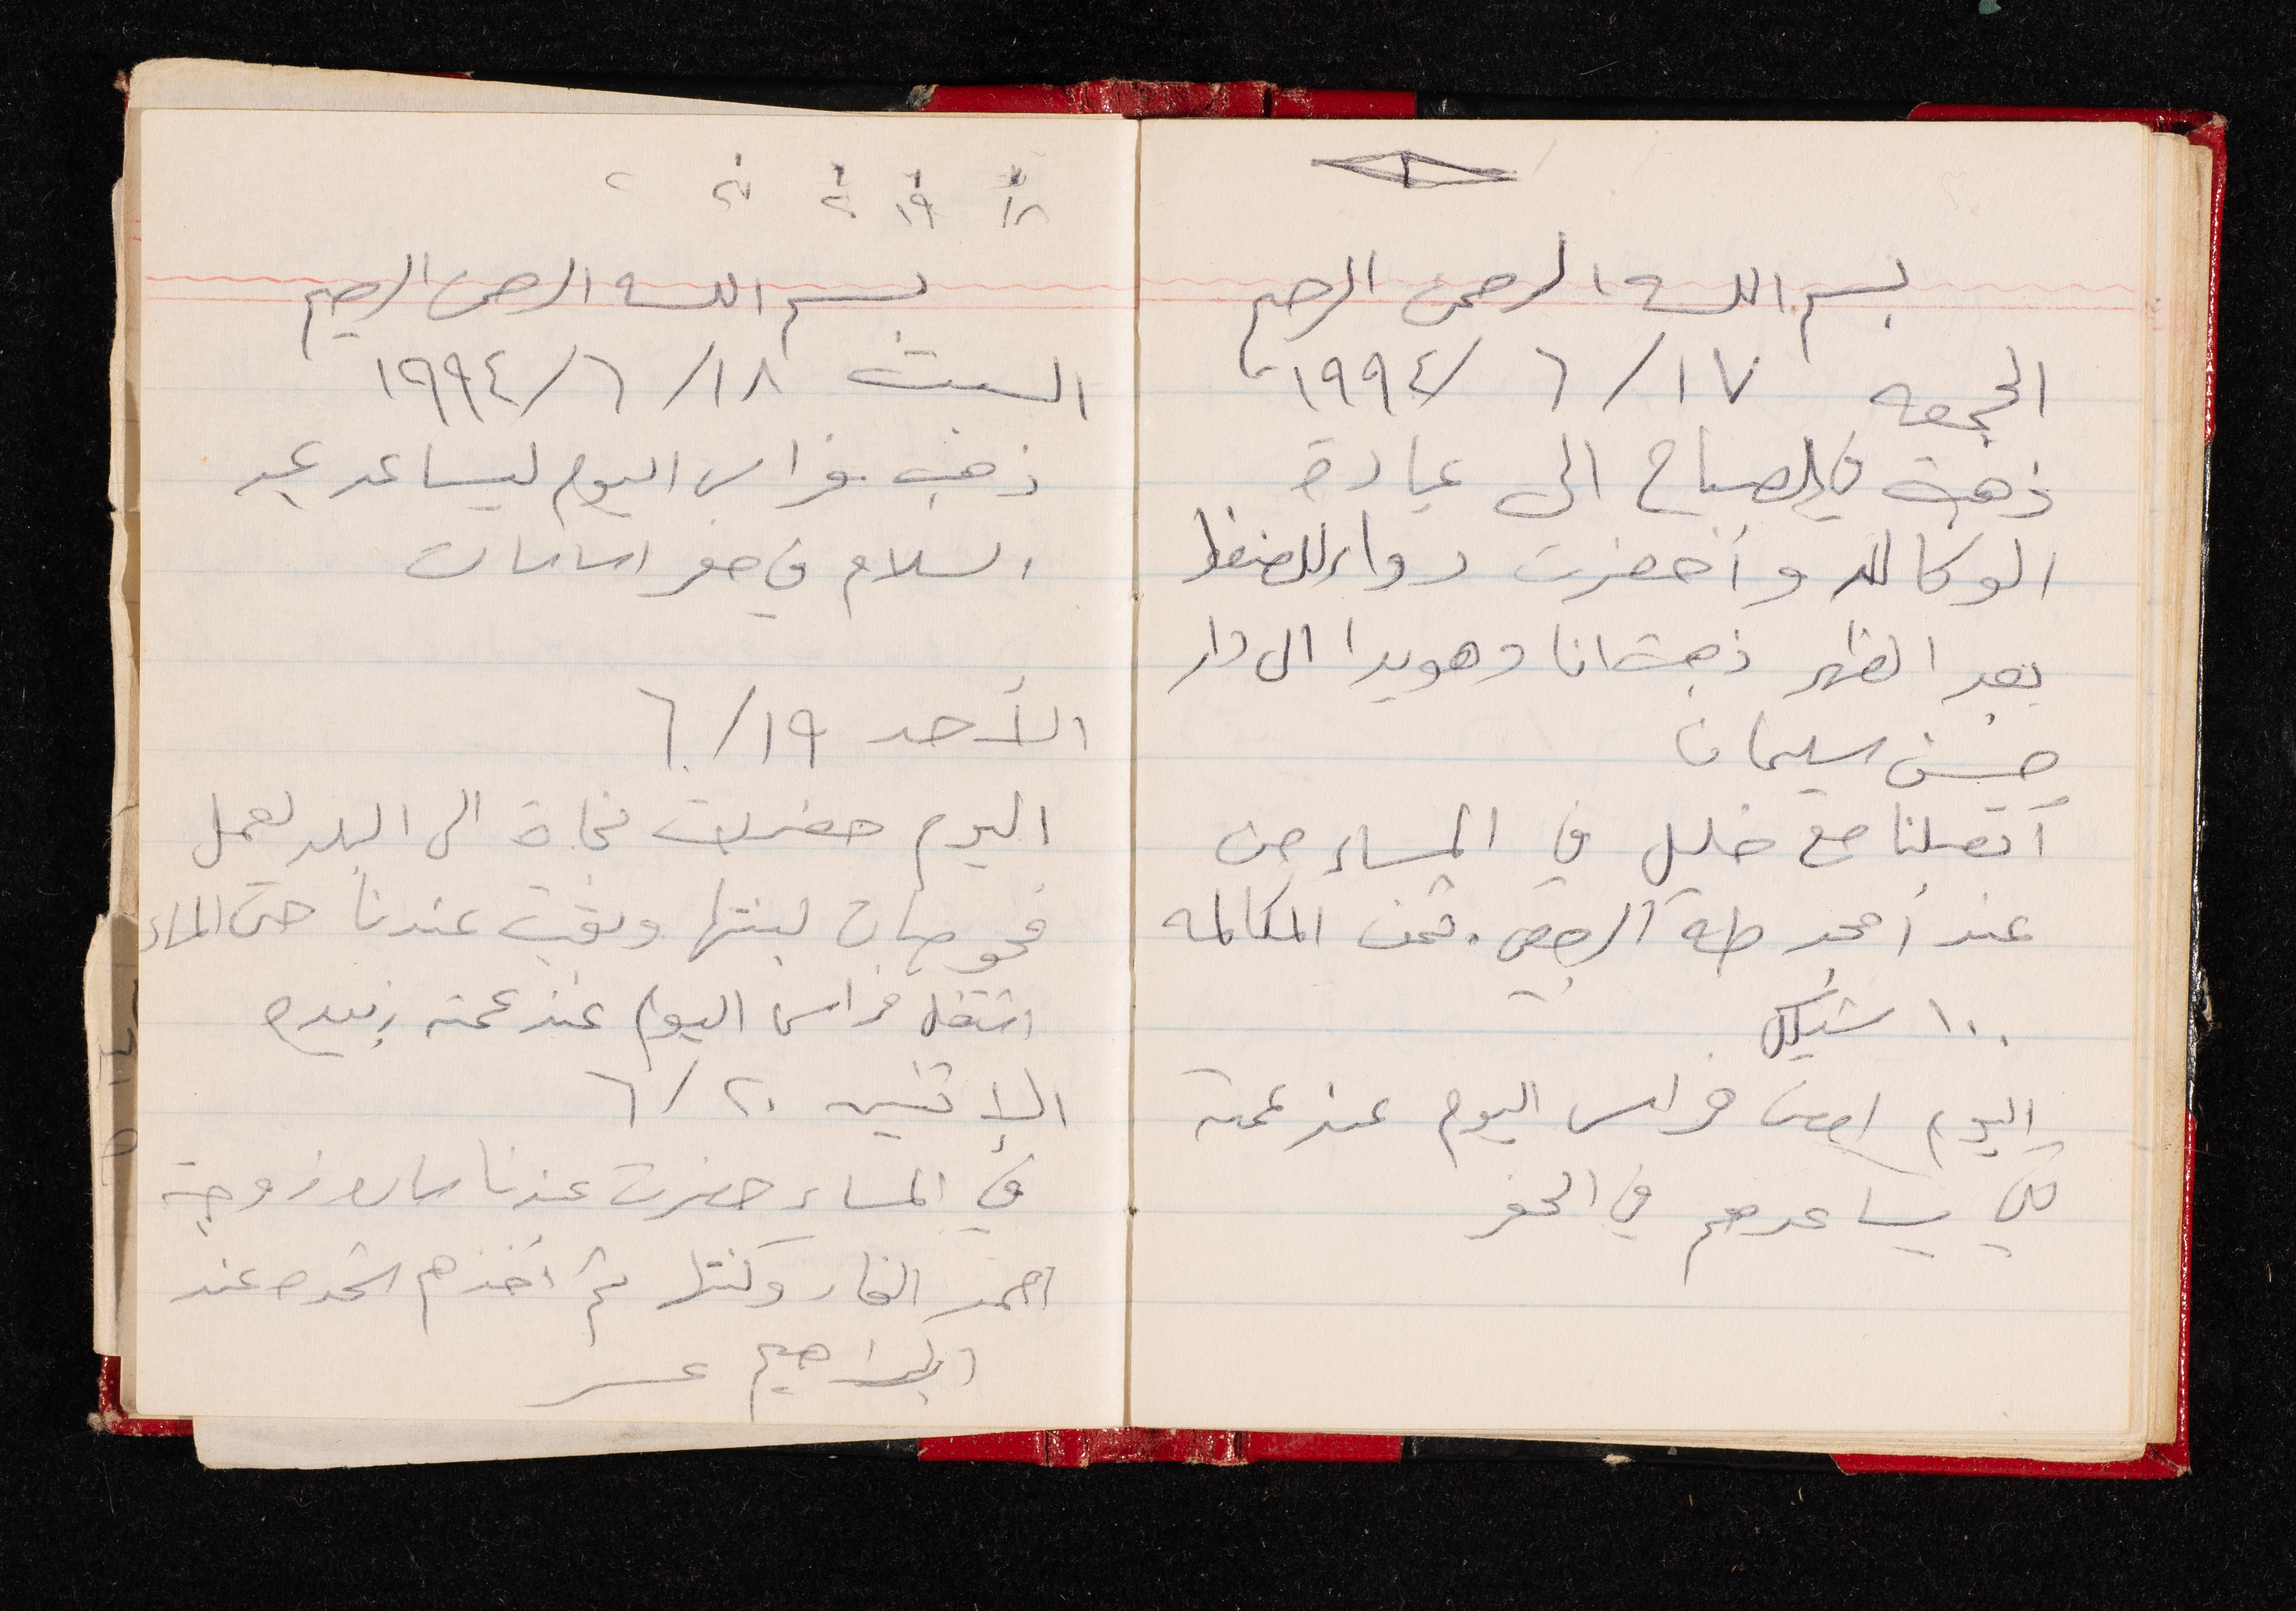 بسم الله الرحمن الرحيم
الجمعه ١٧/٦/١٩٩٤
ذهبت في الصباح الى عيادة
الوكاله وأحضرت دواء للضغط
بعد الظهر ذهبت انا وهويدا الى دار
حسن سليمان
أتصلنا مع خليل في المساء من
عند أمجد طه الرجبي. ثمن المكالمه
١٠ شيكل
اليوم فراس اليوم عند عمته
لكي يساعدهم في الحفر
١٨ ١٩ ٢٠
بسم الله الرحمن الرحيم
السبت ١٨/٦/١٩٩٤
ذهب فراس اليوم ليساعد عبد
السلام في حفر اساسات
الأحد ١٩/٦
اليوم حضرت نجاة الى البلد لعمل
فحوصات لبنتها وبقيت عندنا حتى المساء
اشتغل فراس اليوم عند عمته زبيده
الإثنين ٢٠/٦
في المساء حضرت عندنا زوجة
احمد الفار وكنتها ثم أخذهم عند
ابراهيم